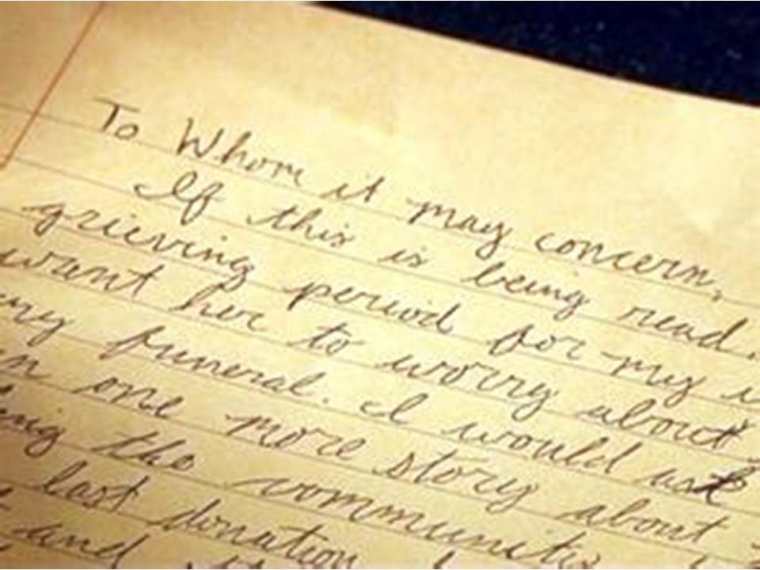 To Whom it may concern,
If this is being read.
grieving period for my
want her to worry about
my funeral. I would
one more story about
the community
last donation
and